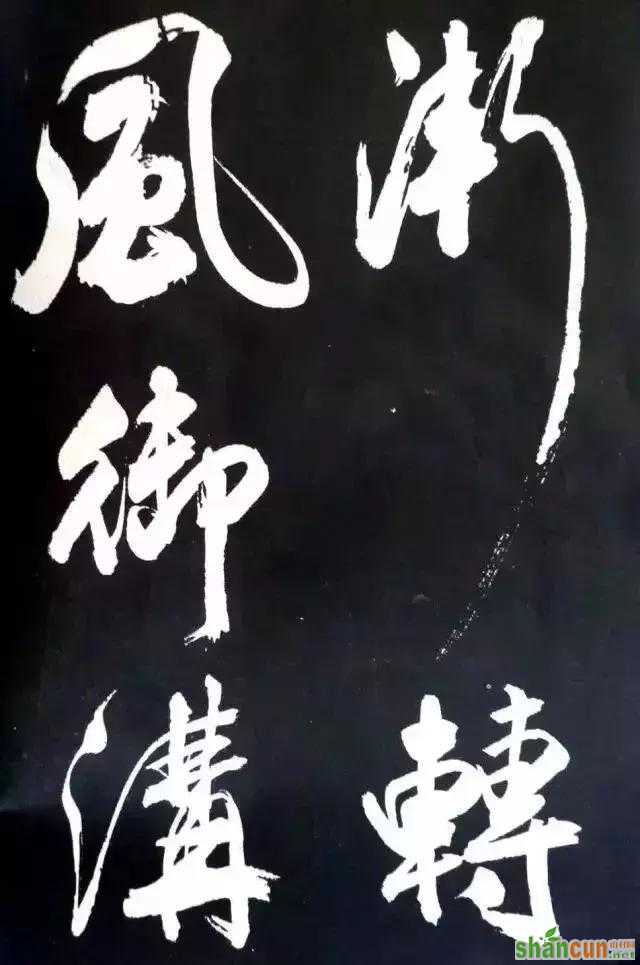 漸轉
風御溝
shancun
山村网
.net